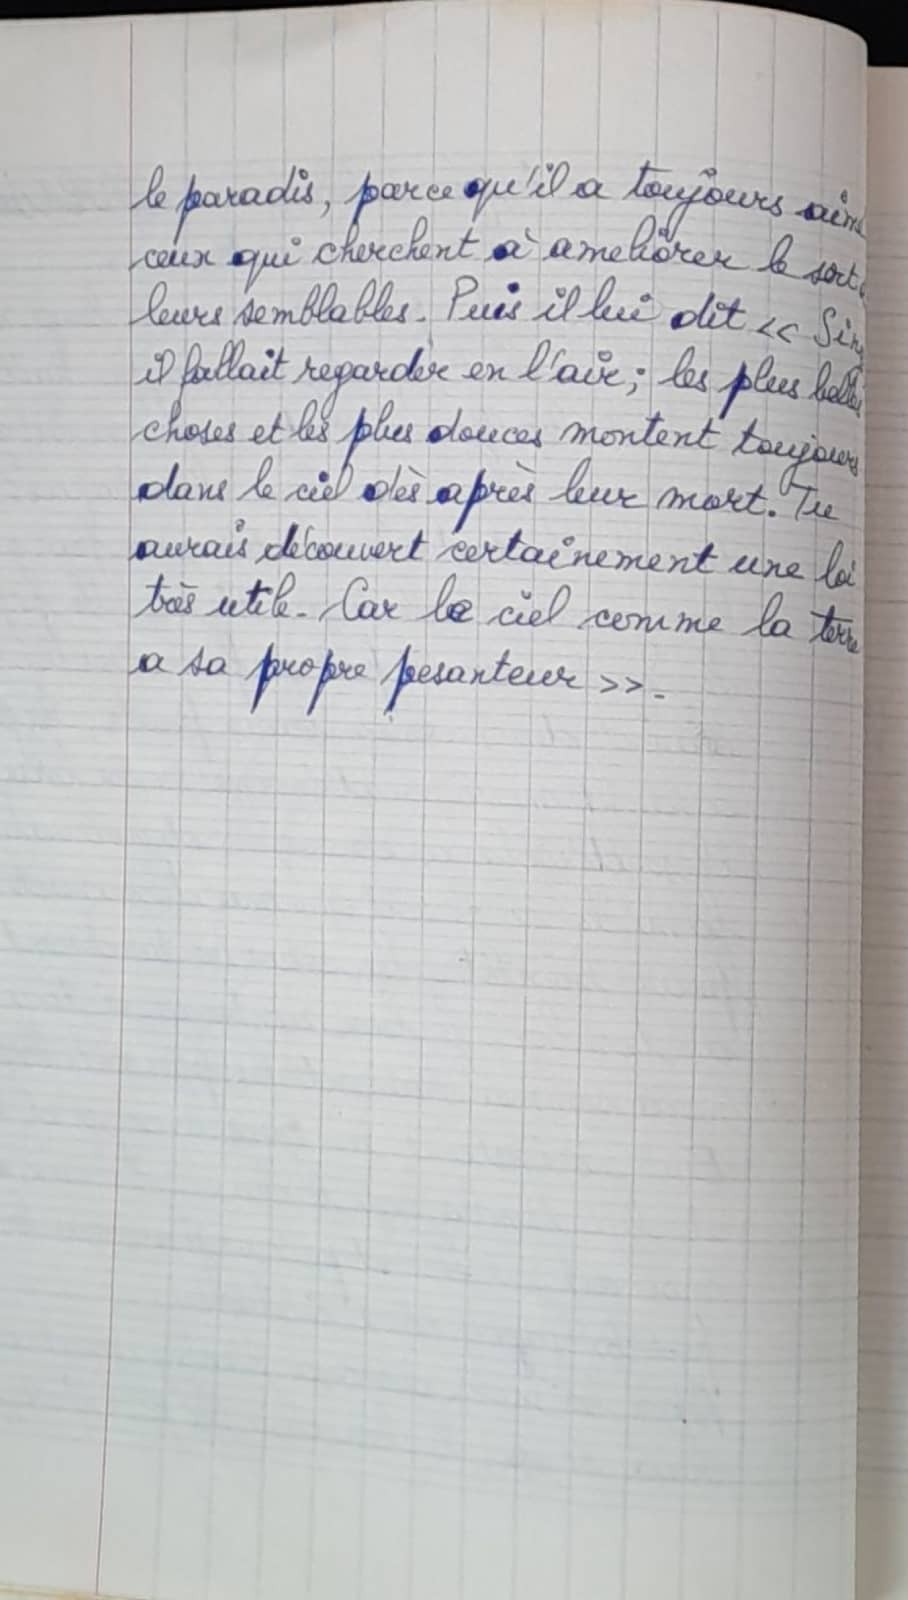 le paradis, parce qu'il a toujours aimé
ceux qui cherchent à améliorer le sort
leurs semblables. Puis il lui dit <<
il fallait regarder en l'air; les plus belles
choses et les plus douces montent toujours
dans le ciel dès après leur mort. Tu
aurais découvert certainement une loi
très utile. Car le ciel comme la terre
a sa propre pesanteur >>.